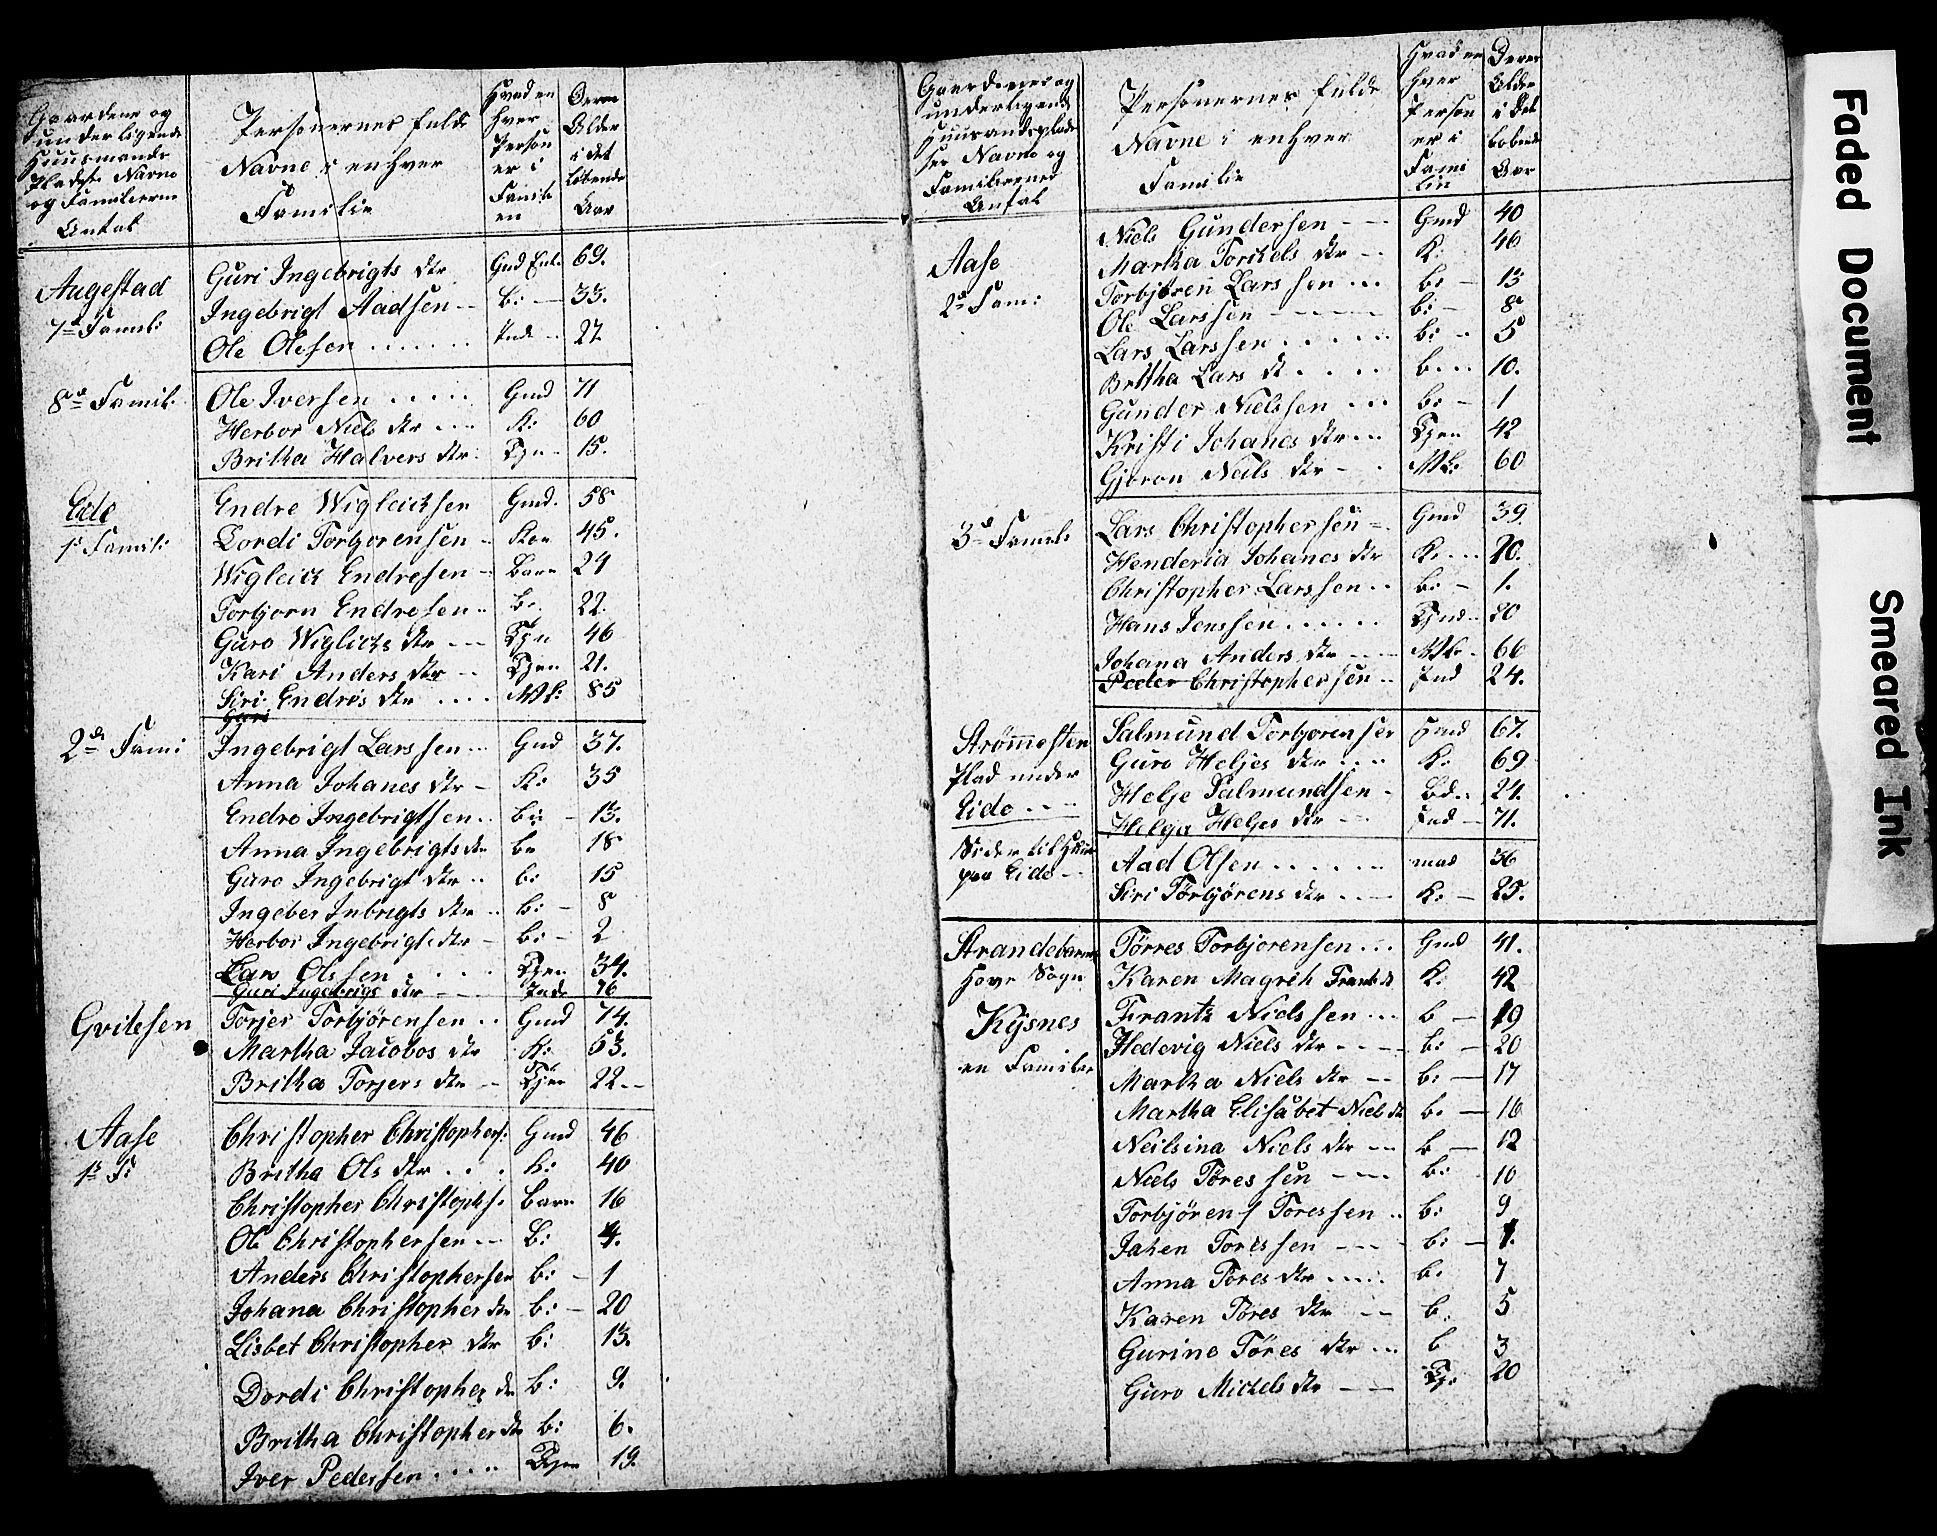 Gaardene og
underligende
Huusmands
Pladse Navne
og Familiernes
Antal
Personernes fulde
Navne i en hver
Familie
Hvad en
hver
Person
er i
Famili
en
Deres
Alder
i det
løbende
Aar
Augestad
7de Famil:
Guri Ingebrigts dtr Gmd Enk: 69.
Ingebrigt Aadsen -- b: — 33.
Ole Olesen ....... Inds -- 27
8de Famil:
Ole Iversen ..... Gmd 71
Herbor Niels dtr .... K: 60
Britha Halvers dtr: Tjn - 15.
Eide
1ste Famil:
Endre Wigleichsen Gmd. 58
Dordi Torbjorensen .. Kone 45.
Wigleich Endresen -- Barn 24
Torbjorn Endresen .. b: 22.
Guro Wiglichs dtr --- Tjn 46
Kari Anders dtr -- Tjen 21.
Siri Endres dtr .... Mk: 85
Guri
2den Fami:
Ingebrigt Larssen ... Gmd 37.
Anna Johanes dtr - K: 35
Endre Ingebrigtsen .. b: - 13.
Anna Ingebrigts dtr b: 18
Guro Ingebrigt dtr .. b: 15
Ingeber Inbrigts dtr .. b: — 8
Herbor Ingebrigts dtr - b: — 2
Lars Olssen . . . . Tjen 34.
Guri Ingebrigs dtr --- Inds 76
Gvitesen
Torjer Torbjørensen .. Gmd 74.
Martha Jacobos dtr K: 63.
Britha Torjers dtr -- Tjen 22 --
Aase
1ste F:
Christopher Christophers: Gmd 46
Britha Ols dtr . . . K: 40
Christopher Christophs: Barn 16
Ole Christophersen -- B: 4.
Anders Christophersen b: - 1
Johana Christopher dtr b: — 20
Lisbet Christopher dtr b: 13.
Dordi Christopher dtr b: 9.
Britha Christopher dtr b: 6.
Iver Pedersen ..... Tjen 19.
Gaardenes og
underligende
Huusmandsplad
ser Navne og
Familiernes
Antal
Personernes fulde
Navne i en hver
Familie
Hvad en
hver
Person
er i
Fami
lien
Deres
Alder
i det
løbende
Aar
Aase
2den Fam:
Niels Gundersen --- Gmd 40
Martha Torchels dtr -- K: 46
Torbjøren Larssen ... b: — 13
Ole Larssen ------ b: — 8
Lars Larssen ...... b: -- 5
Brttha Lars d. .... b... 10.
Gunder Nielssen ... b: — 1
Kristi Johanes dtr ... Tjen 42
Gjøron Neils dtr - . Mk: 60
3die Famil:
Lars Christophersen =. Gmd 39.
Henderia Johanes dtr K. ... 20.
Christopher Larssen .. b: — 1.
Hans Jenssen ...... Tjen -- 20
Johana Anders dtr ---- Mk. 66
Peder Christophersen .. Ind 24.
Strømmesten
Plads under
Eide ----
Salmund Torbjorensen Hmd 67.
Guro Heljes dtr .... K: 69
Helje Salmundsen - bd.. 24.
Helga Heljes dtr --- Ind — 71.
Sider til Huus
paa Eide --
Aad Olsen ...... mand 36
Siri Torbjørens dtr .... K: — 25.
Strandebarm
Hove Sogn
Kysnes
en Familie
Tørres Torbjorensen ... Gmd 41.
Karen Magreh Frants d K: 42
Frantz Nielssen ... b — 19
Hedevig Niels dtr ---- b: — 20
Martha Niels dtr -- b: — 17
Martha Elisabet Niels dt b. — 16
Neilsina Niels dtr --- b — 12
Niels Tøressen ---- b: 10
Torbjøren f Toressen .. b: 9
Jahen Toressen ---- b: — 1.
Anna Tores dtr ..... b. 7
Karen Tøres dtr -- b. 5
Gurine Tøres dtr ... b 3
Guro Michels dtr --- Tj: 20
Faded Document
Smeared Ink